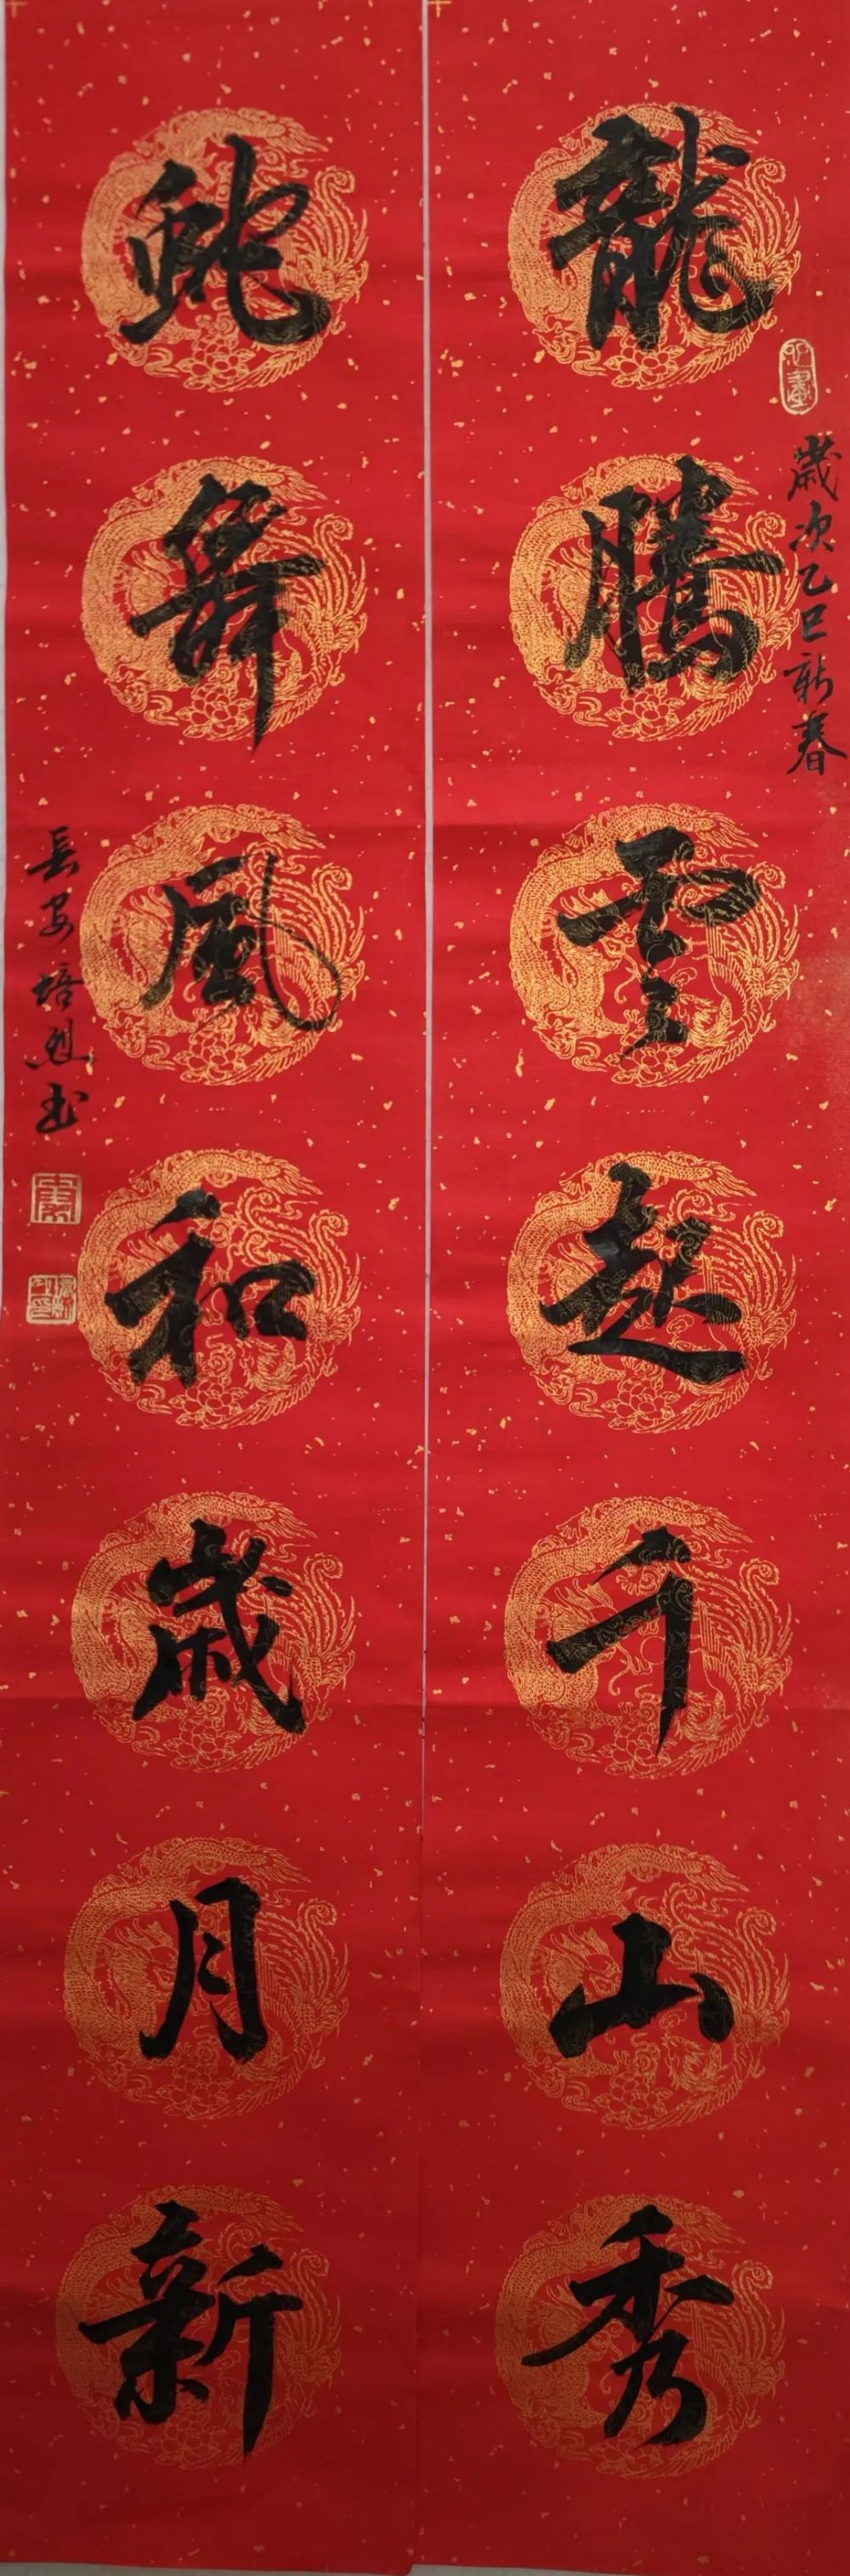 龍騰雲起千山秀
歲次乙巳新春
蛇舞風和歲月新
長安培烈書